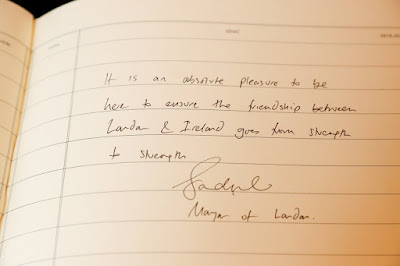 It is an absolute pleasure to be
here to ensure the friendship between
London & Ireland goes from strength
to strength
Mayor of London.